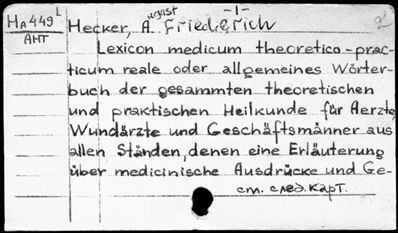 На449 L
АНТ
-1- 2
Hecker, August Friederich
Lexicon medicum theoretico-prac-
ticum reale oder allgemeines Wörter-
buch der gesammten theoretischen
und praktischen Heilkunde für Aerzte,
Wundärzte und Geschäftsmänner aus
allen Ständen, denen eine Erläuterung
über medicinische Ausdrücke und Ge-
см. след. карт.